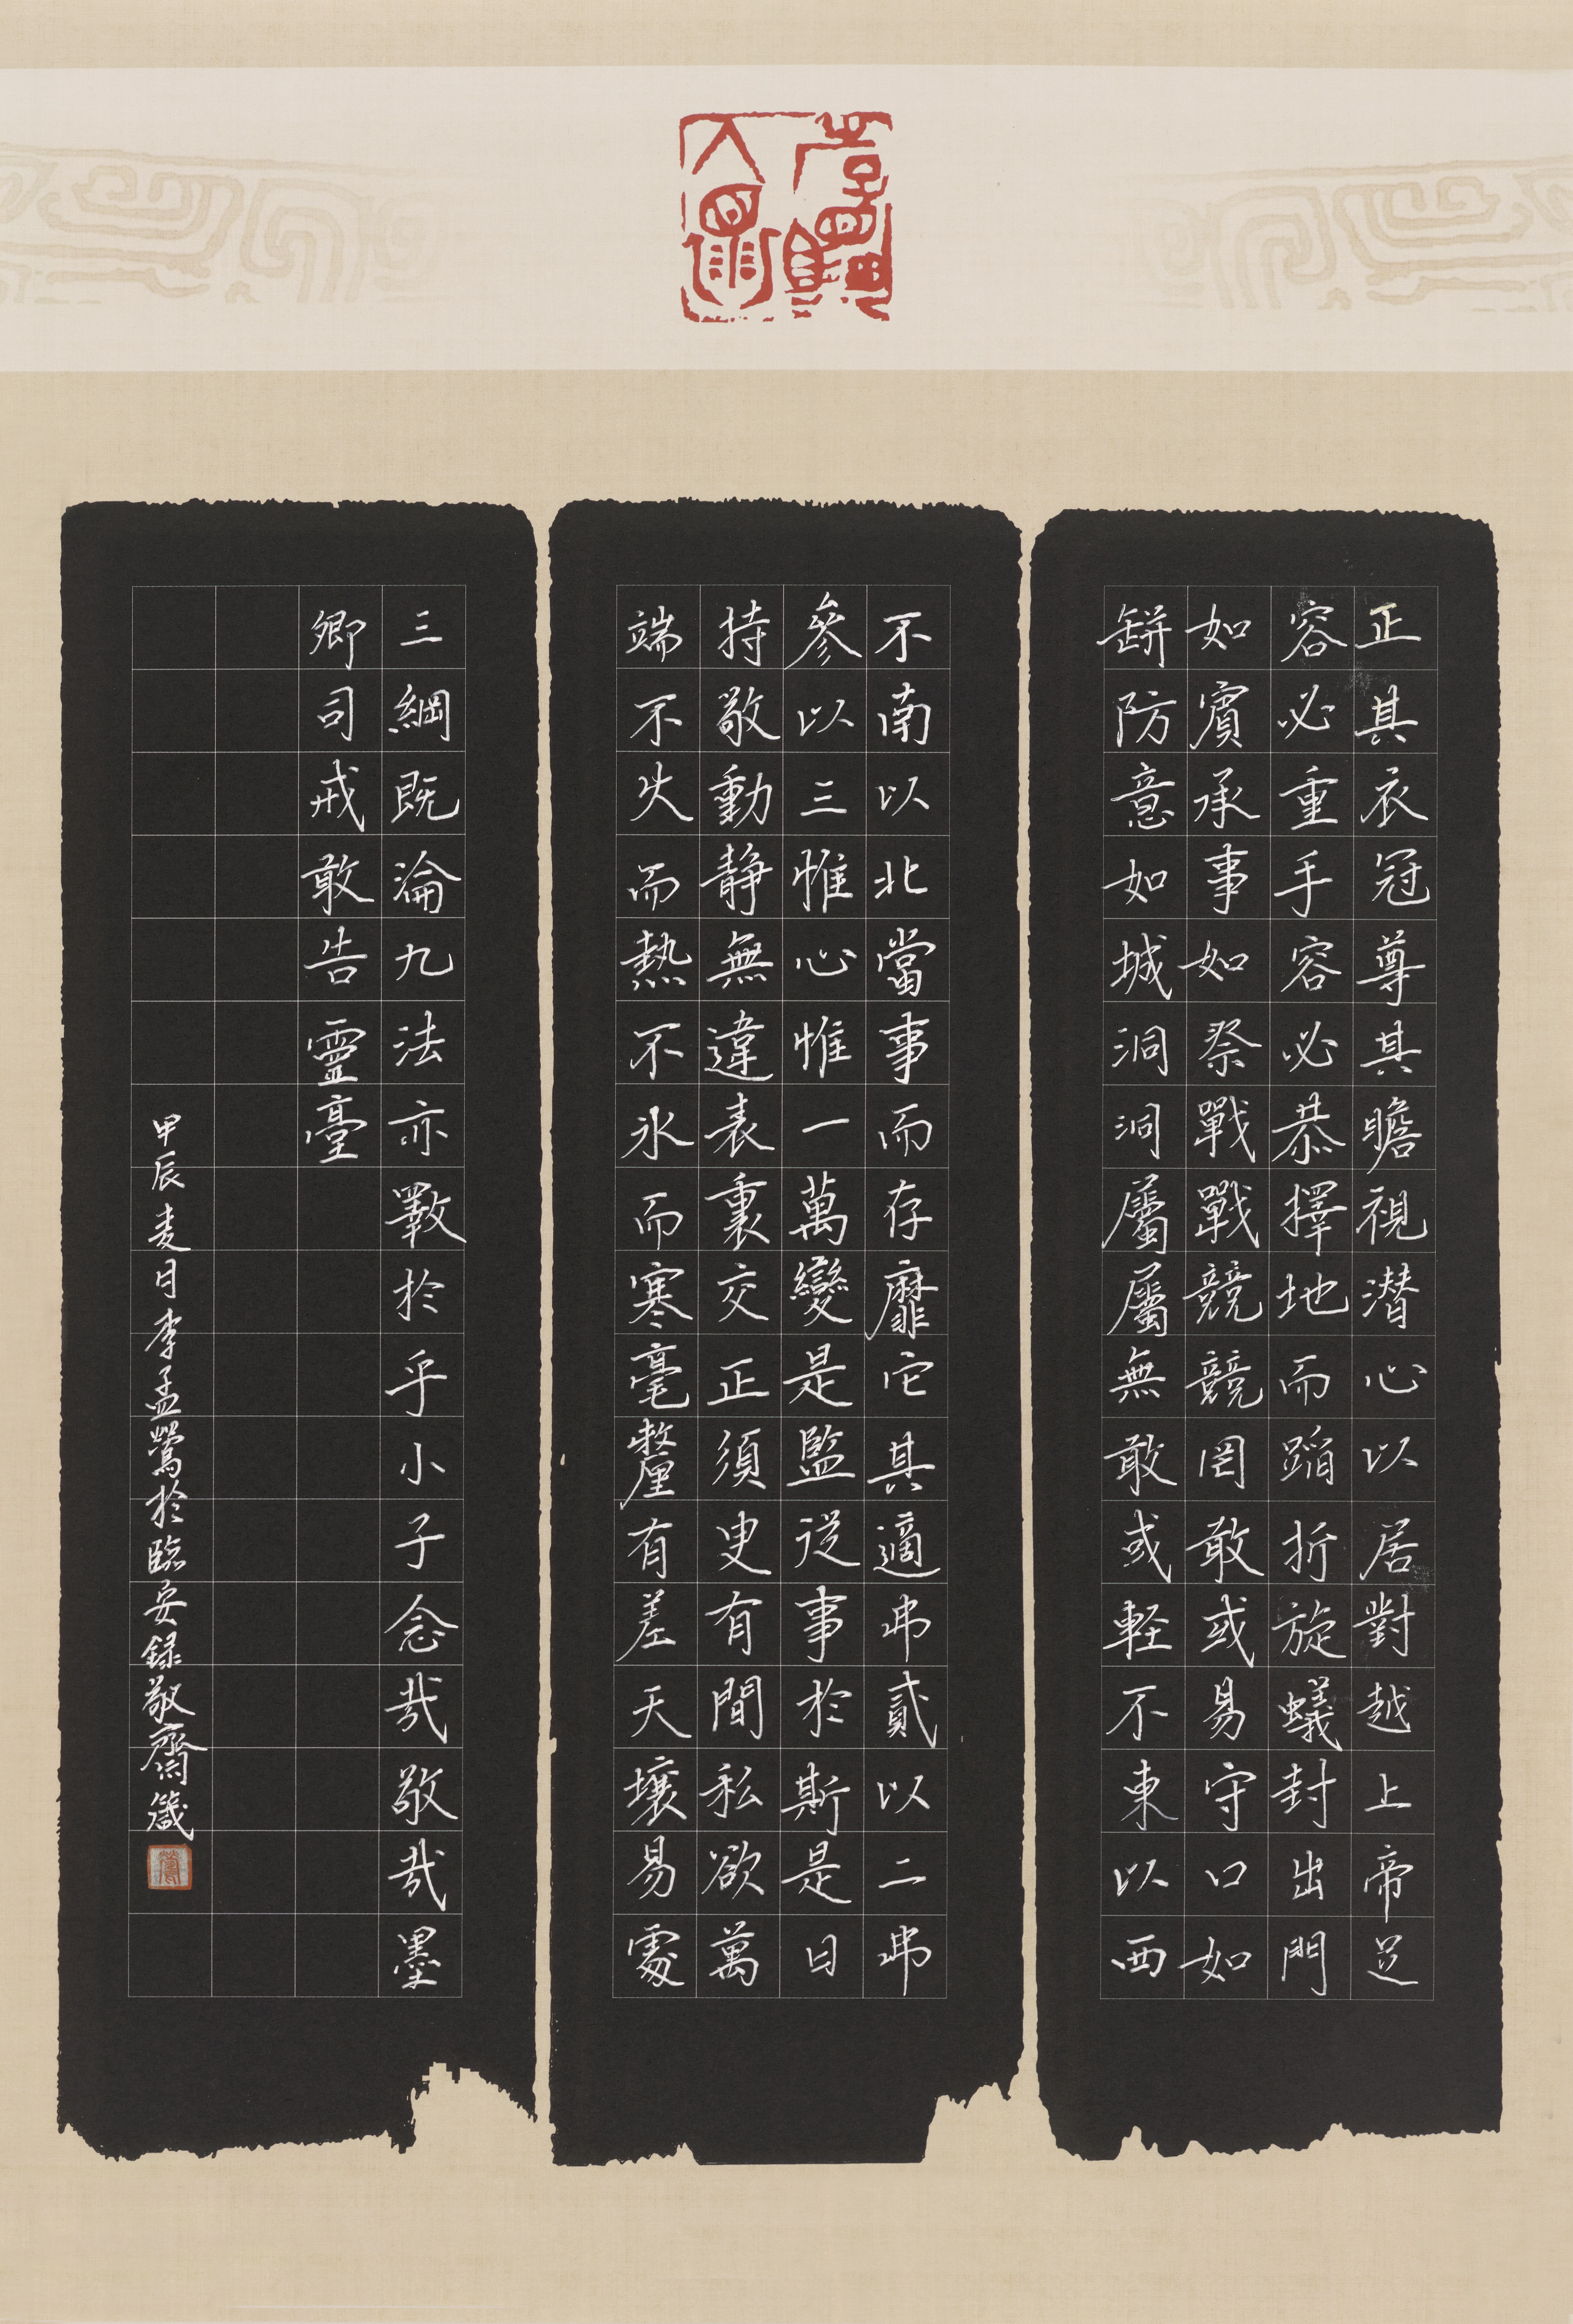 正其衣冠尊其瞻視潜心以居對越上帝足
容必重手容必恭擇地而蹈折旋蟻封出門
如賓承事如祭戰戰競競罔敢或易守口如
缾防意如城洞洞屬屬無敢或軽不東以西
不南以北當事而存靡它其適弗貳以二弗
參以三惟心惟一萬變是監從事於斯是曰
持敬動静無違表裏交正須臾有間私欲萬
端不火而熱不氷而寒毫釐有差天壤易處
三綱既淪九法亦斁於乎小子念哉敬哉墨
卿司戒敢告靈臺
甲辰麦月李孟鶯於臨安録敬齋箴
鶯